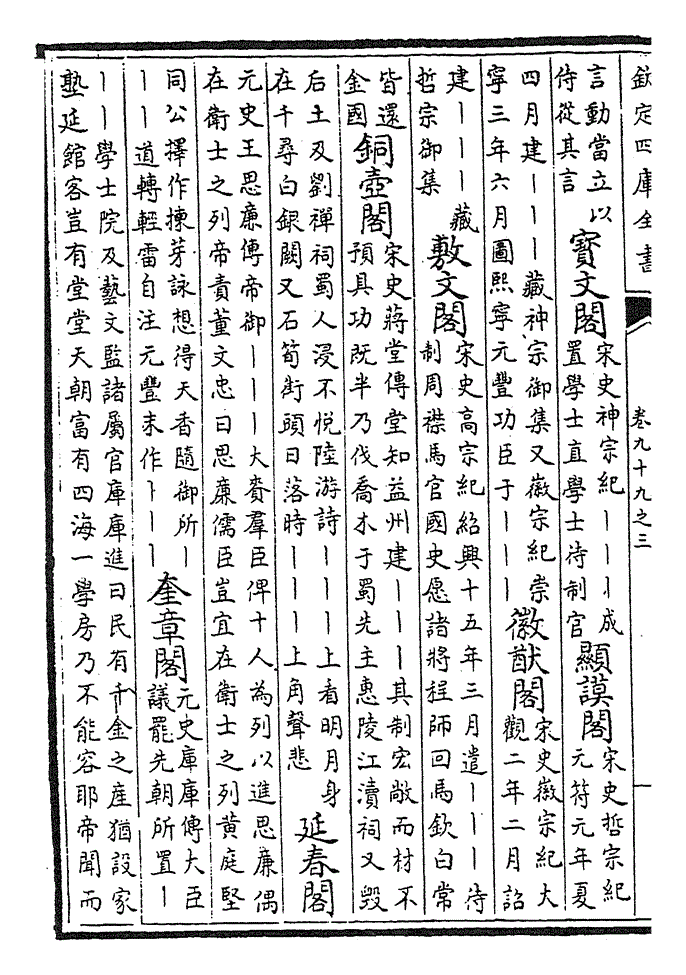 欽定四庫全書
卷九十九之三
言動當立以
侍從其言
寶文閣
宋史神宗紀丨丨丨成
置學士直學士待制官
顯謨閣
宋史哲宗紀
元符元年夏
四月建丨丨丨藏神宗御集又徽宗紀崇
寧三年六月圖熙寧元豐功臣于丨丨丨
徽猷閣
宋史徽宗紀大
觀二年二月詔
建丨丨丨藏
哲宗御集
敷文閣
宋史高宗紀紹興十五年三月遣丨丨丨待
制周襟馬官國史愿諸將程師回馬欽白常
皆還
金國
銅壺閣
宋史蔣堂傳堂知益州建丨丨丨其制宏敞而材不
預具功既半乃伐喬木于蜀先主惠陵江瀆祠又毀
后土及劉禪祠蜀人浸不悅陸游詩丨丨丨上看明月身
在千尋白銀闕又石筍街頭日落時丨丨丨上角聲悲
延春閣
元史王思廉傳帝御丨丨丨大賚羣臣俾十人為列以進思廉偶
在衛士之列帝責董文忠曰思廉儒臣豈宜在衛士之列黄庭堅
同公擇作揀芽詠想得天香隨御所丨
丨丨道轉輕雷自注元豐末作丨丨丨
奎章閣
元史庫庫傳大臣
議罷先朝所置丨
丨丨學士院及藝文監諸屬官庫庫進曰民有千金之產猶設家
塾延館客豈有堂堂天朝富有四海一學房乃不能容耶帝聞而